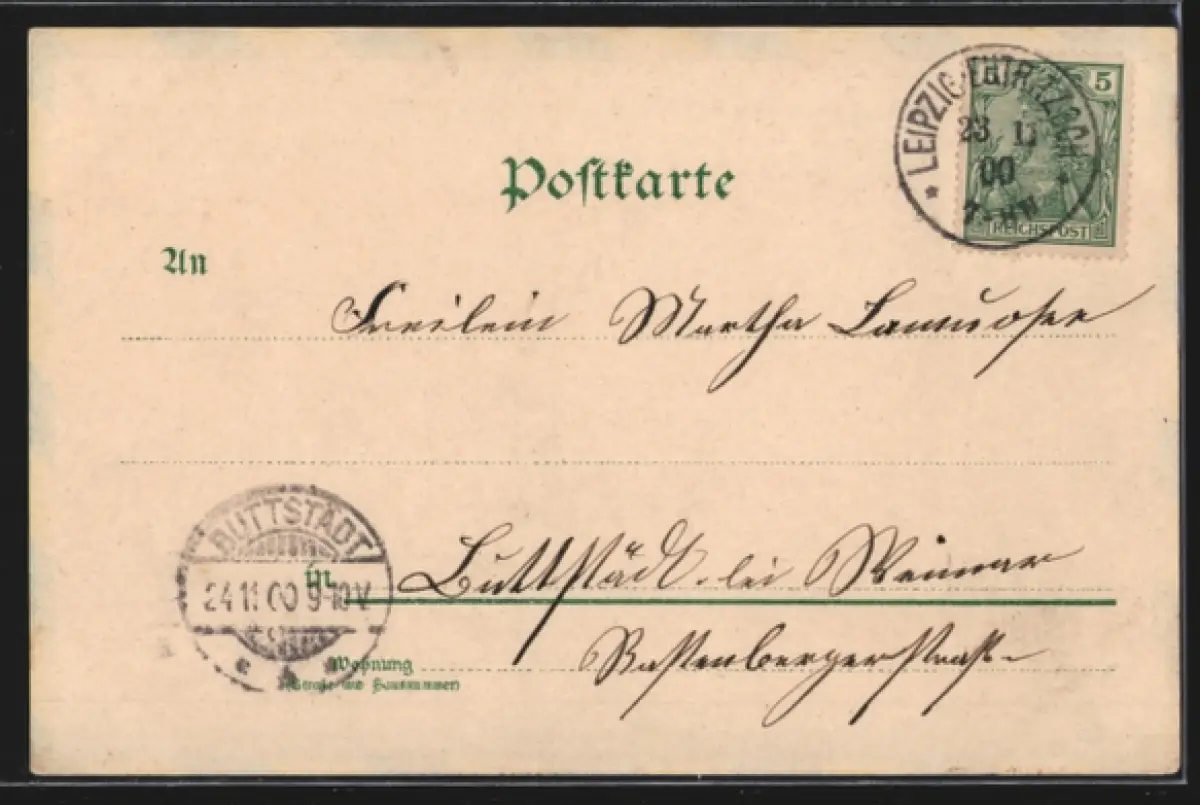 Postkarte
LEIPZIG-EUTRITZSCH
23 11
00
7-8 N
5
REICHSPOST
An
Freilein Martha
BUTTSTÄDT
24 11 00 9-10 V
in Buttstädt bei Weimar
Wohnung Rastenbergerstraß
(Straße und Hausnummer)